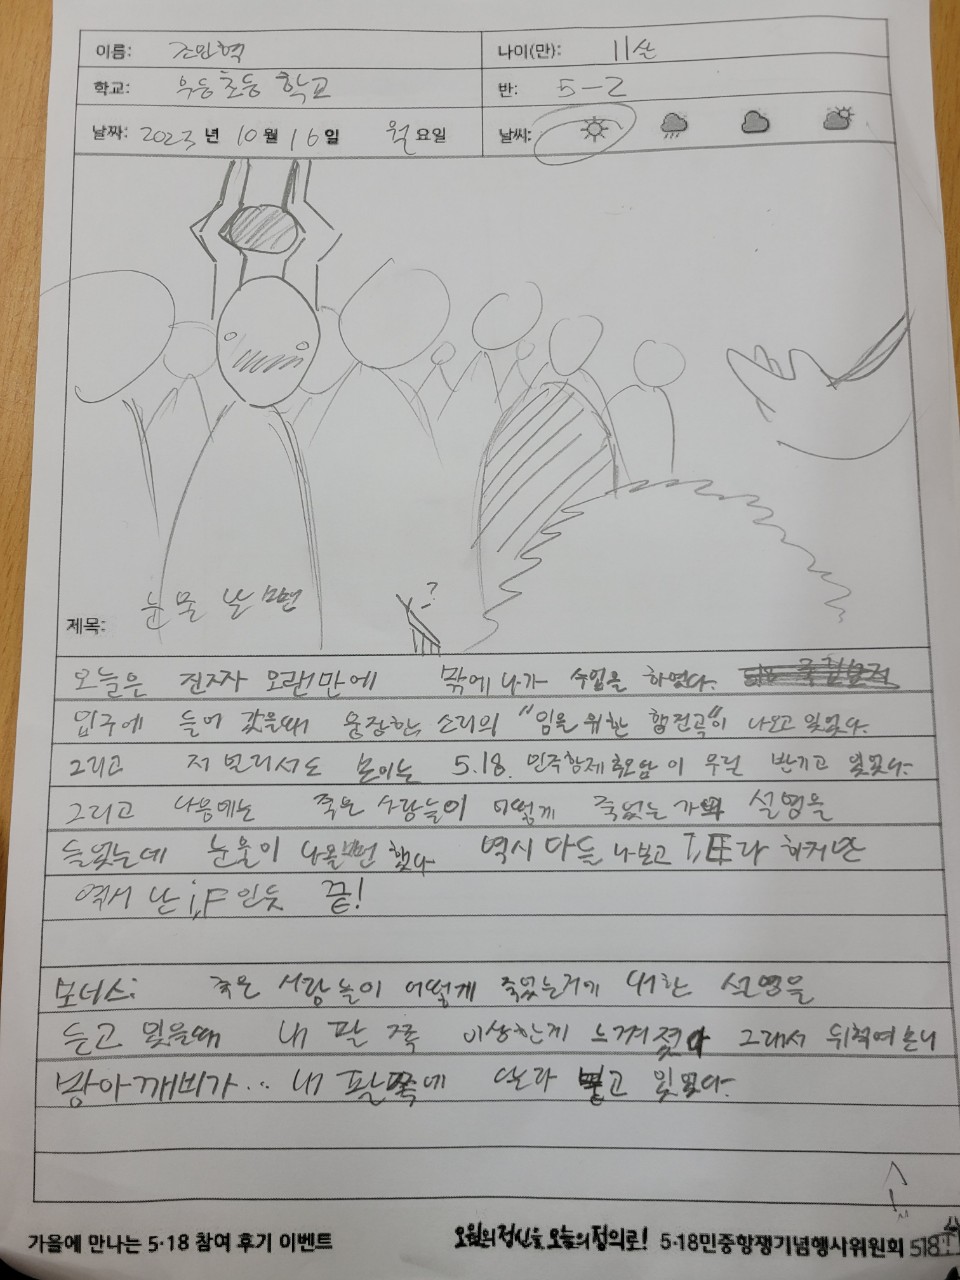 이름: 조민혁 나이(만): 11살
학교: 우등초등학교 반: 5-2
날짜: 2023년 10월 16일 월요일 날씨:
?
제목: 눈물 날 뻔
오늘은 진짜 오랜만에 밖에 나가 수업을 하였다.
입구에 들어 갔을때 웅장한 소리의 "임을 위한 행진곡"이 나오고 있었다.
그리고 저 멀리서도 보이는 5.18. 민주항쟁 추모탑이 우릴 반기고 있었다.
그리고 다음에는 죽은 사람들이 어떻게 죽었는가 설명을
들었는데 눈물이 나올뻔 했다. 역시 다들 나보고 라 하지만
역시 난 인듯 끝!
보너스: 죽은 사람들이 어떻게 죽었는거에 대한 설명을
듣고 있을때 내 팔 쪽 이상한게 느껴졌다 그래서 뒤척여 보니
방아깨비가... 내 팔쪽에 붙고 있었다.
가을에 만나는 5·18 참여 후기 이벤트 오월의 정신을 오늘의 정의로! 5·18민중항쟁기념행사위원회 518